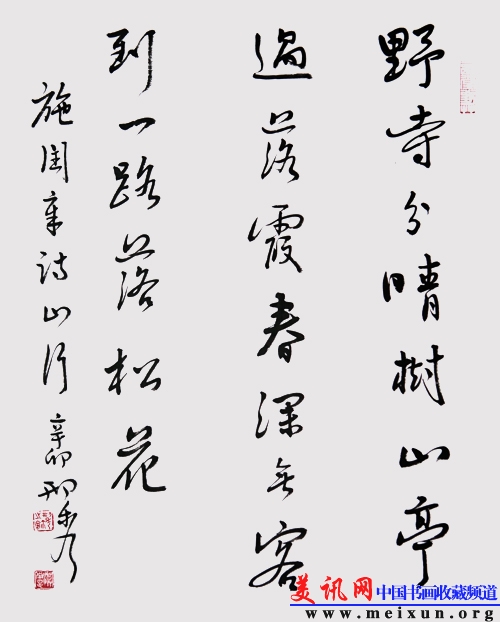 野寺分晴樹山亭
過落霞春深無客
到一路落松花
施閏章詩山行
辛卯
美讯网 中国书画收藏频道
www.meixun.org